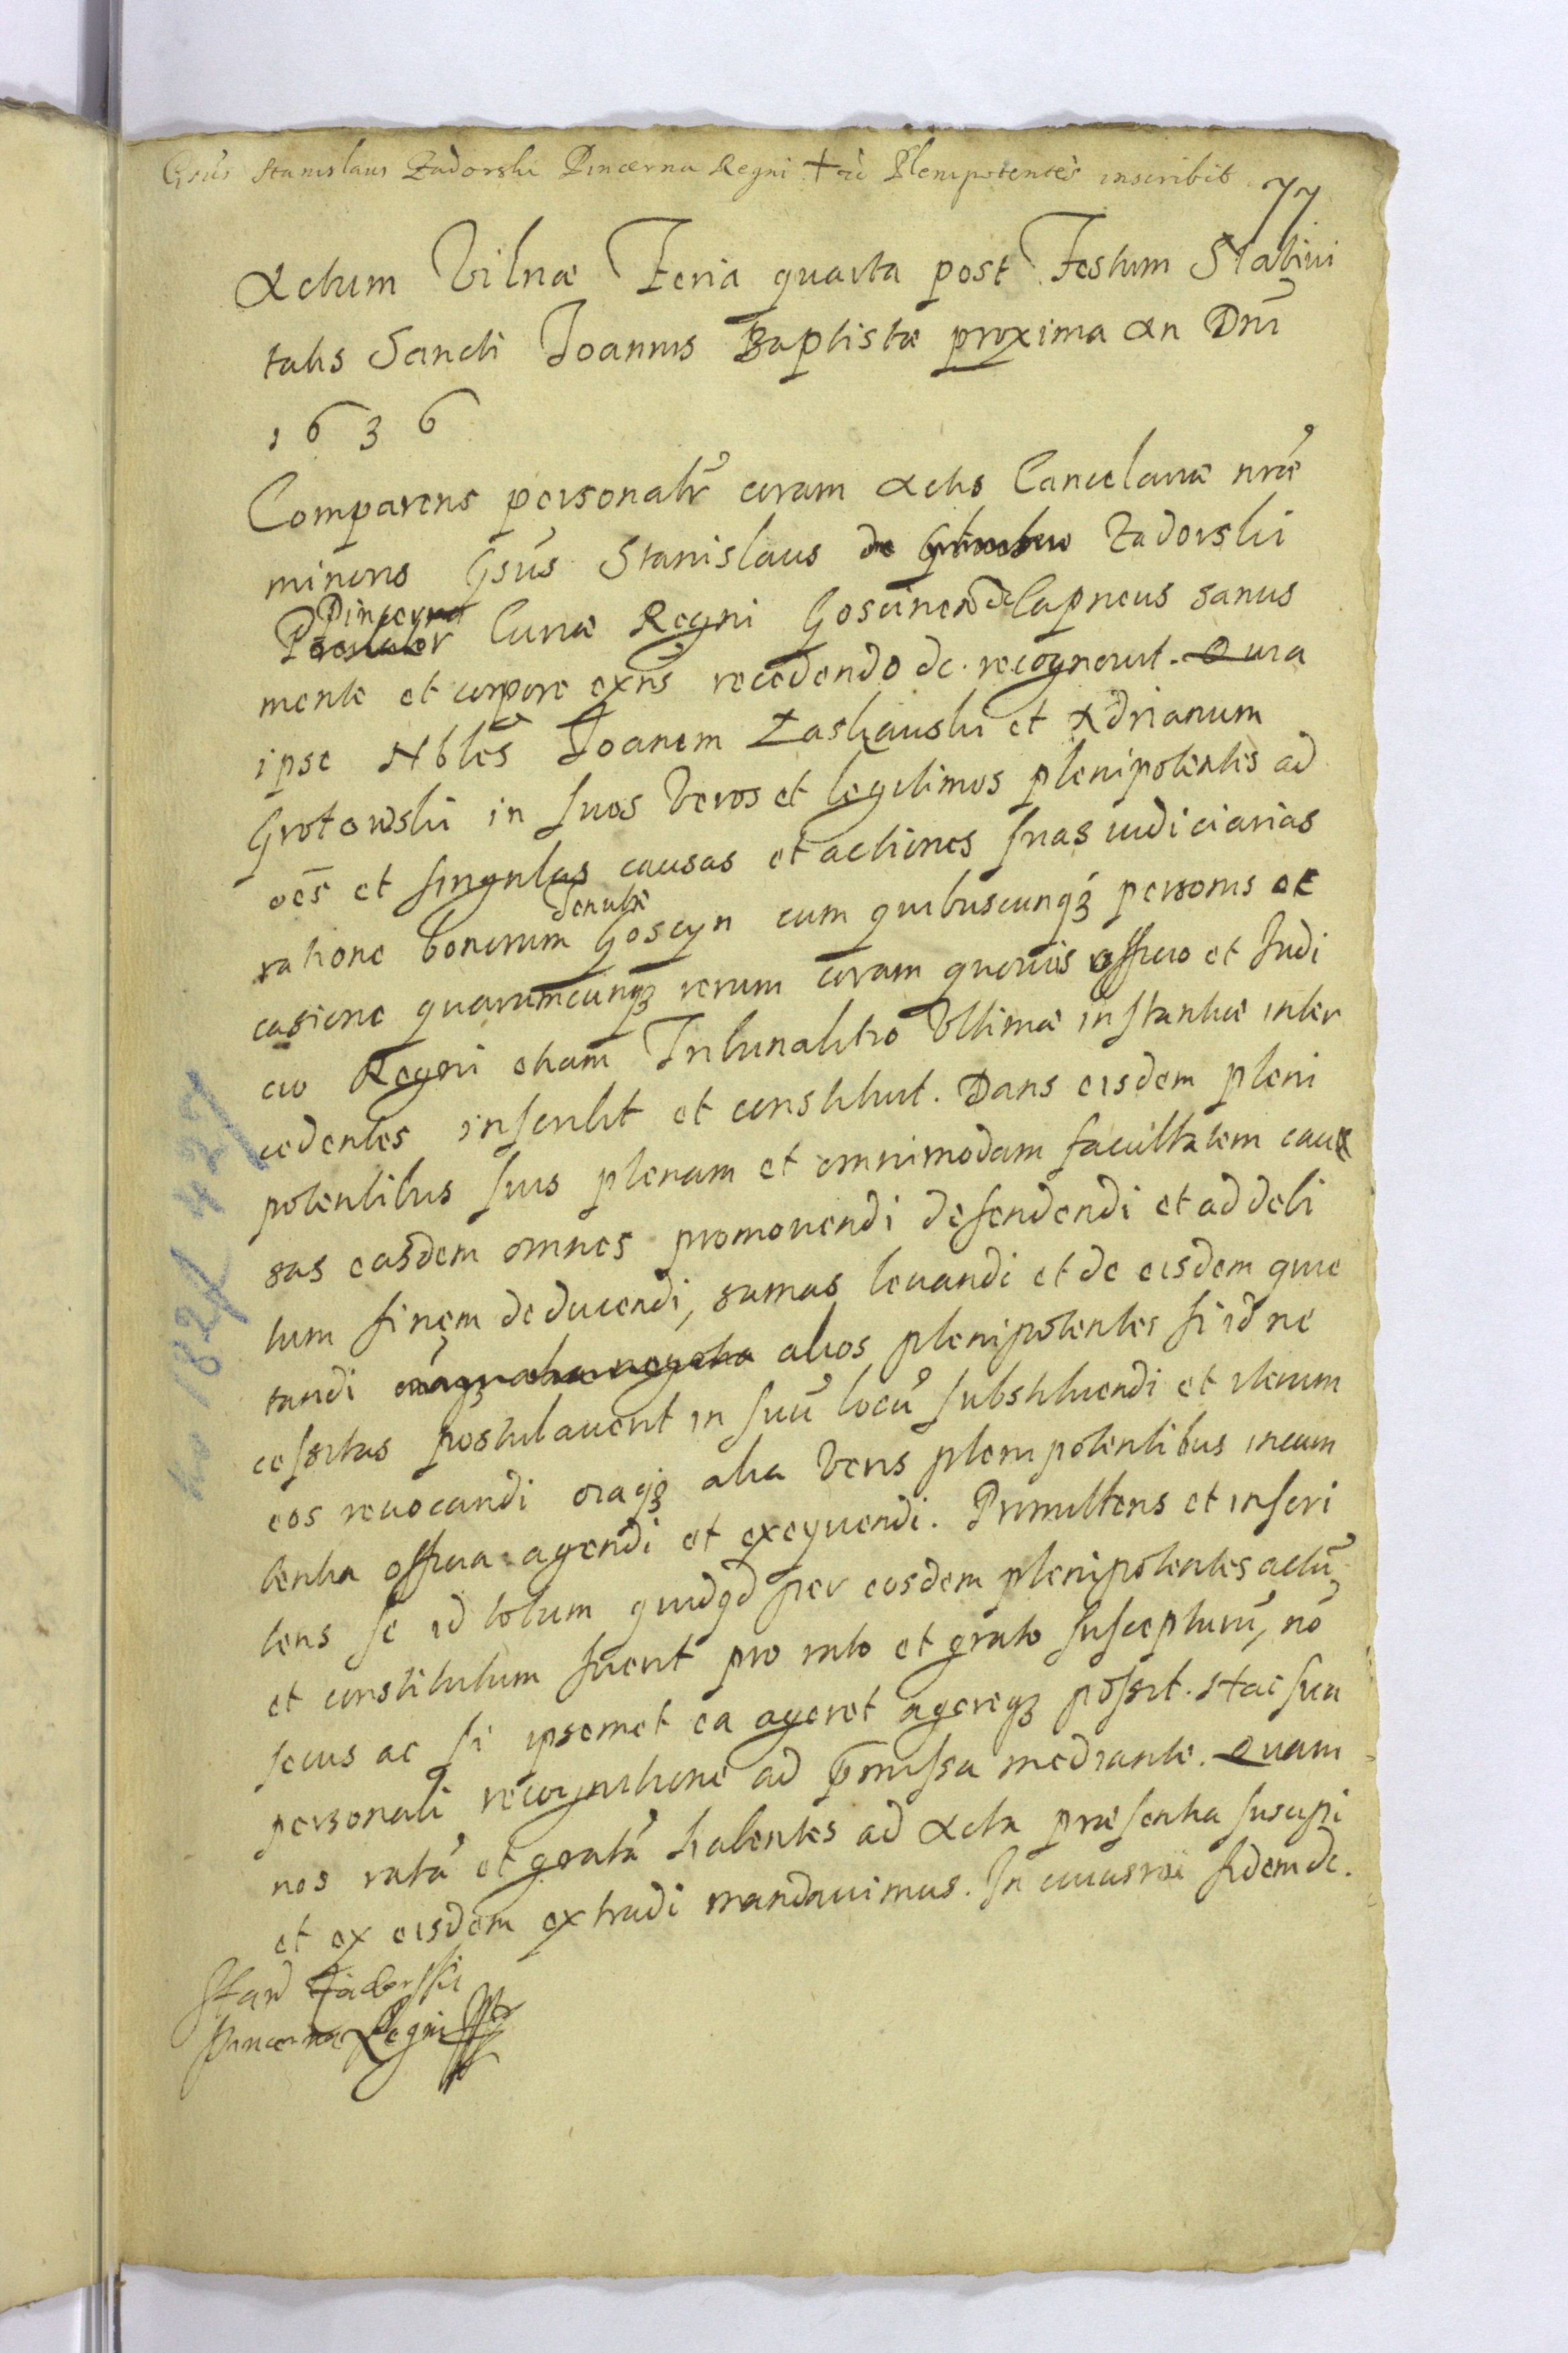 Gsus Stanislaus Zadorski Pincerna Regni Plenipotentes inscribit
77
Actum Vilnæ Feria quarta post Festum Nativi
tatis Sancti Joannis Baptistæ proxima An Dni
1636
Comparens personalr coram Actis Cancelariæ nræ
minoris Gsus Stanislaus de Zadorski
Pincerna
Curiæ Regni Capneus sanus
mente et corpore exns recedendo &c. recognovit. Quia
ipse Nbles Joanem Zaskauski et Adrianum
Grotowski in suos veros et legitimos plenipotentes ad
oes et singulas causas et actiones suas iudiciarias
ratione bonorum Goscyn cum quibuscunqз personis oc
casione quarumcunqз rerum coram quovis officio et Judi
cio Regni etiam Tribunalitio Ultimæ instantiæ inter
cedentes inscribit et constituit. Dans eisdem pleni
potentibus suis plenam et omnimodam facultatem cau
sas easdem omnes promovendi defendendi et ad debi
tum finem deducendi, sumas levandi et de eisdem quie
tandi alios plenipotentes si id ne
cessitas postulaverit in suu locu substituendi et iterum
eos revocandi oiaqз alia veris plenipotentibus incum
bentia officia agendi et exequendi. Promittens et inscri
bens se id totum quidqd per eosdem plenipotentes actu
et constitutum fuerit pro rato et grato suscepturu, no
secus ac si ipsemet ea ageret agereqз possit. Hac sua
personali recognitione ad pmissa mediante. Quam
nos rata et grata habentes ad Acta præsentia suscipi
et ex eisdem extradi mandavimus. In cuius rei fidem &c.
Stan Zadorski
Pincerna Regni
no 182/427